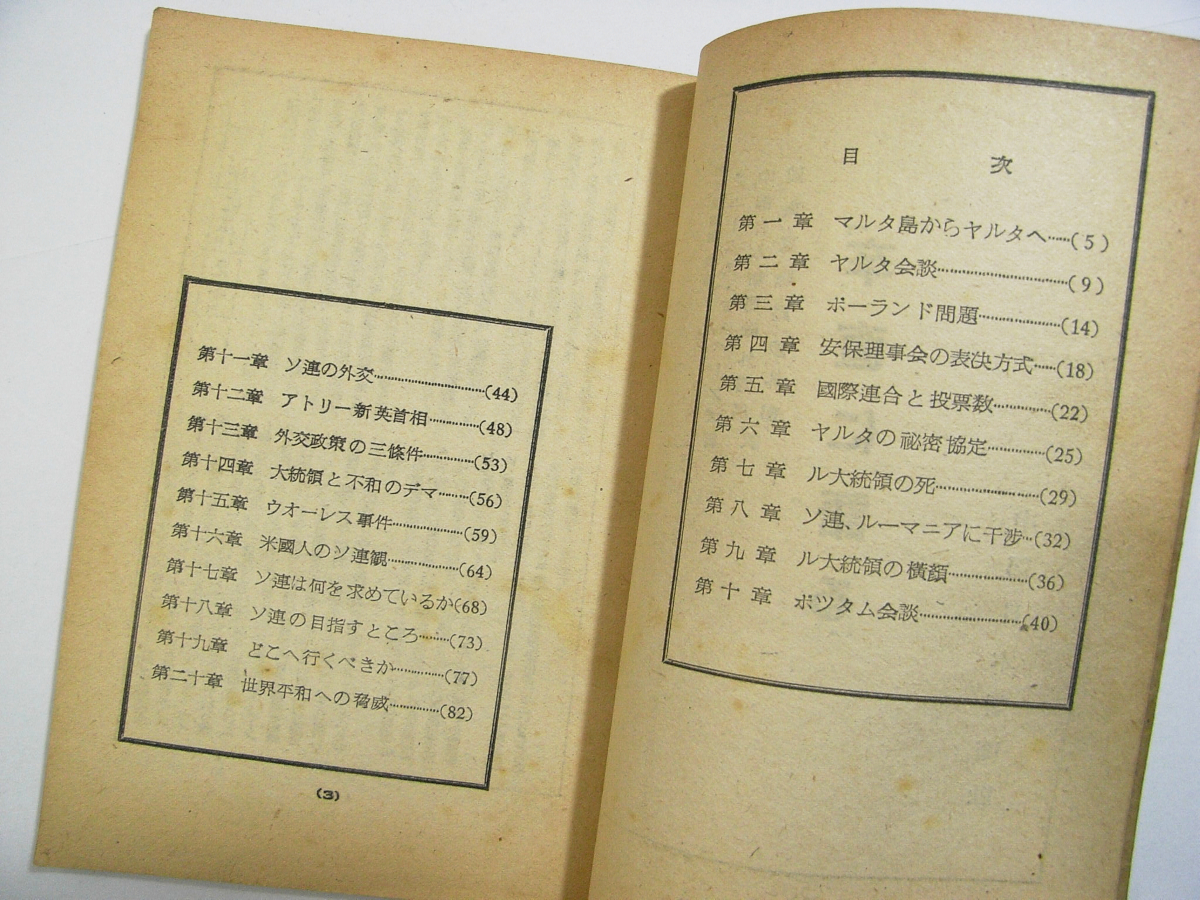 目次
第一章 マルタ島からヤルタへ……(5)
第二章 ヤルタ会談……(9)
第三章 ポーランド問題……(14)
第四章 安保理事会の表決方式……(18)
第五章 國際連合と投票数……(22)
第六章 ヤルタの祕密協定……(25)
第七章 ル大統領の死……(29)
第八章 ソ連、ルーマニアに干渉…(32)
第九章 ル大統領の横顔……(36)
第十章 ポツタム会談……(40)
第十一章 ソ連の外交……(44)
第十二章 アトリー新英首相……(48)
第十三章 外交政策の三條件……(53)
第十四章 大統領と不和のデマ……(56)
第十五章 ウオーレス事件……(59)
第十六章 米國人のソ連観……(64)
第十七章 ソ連は何を求めているか(68)
第十八章 ソ連の目指すところ……(73)
第十九章 どこへ行くべきか……(77)
第二十章 世界平和への脅威……(82)
(3)